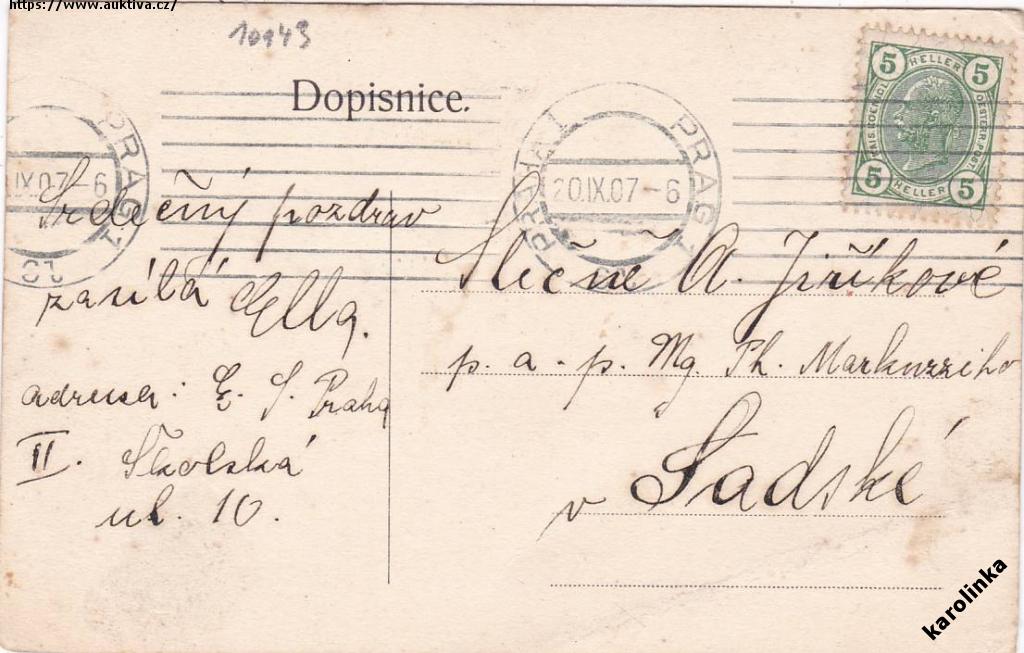 https://www.auktiva.cz/
10943
Dopisnice.
PRAG 1
IX.07-6
PRAHA 1
PRAG 1
20.IX.07-6
5 HELLER 5
5 HELLER 5
Srdečný pozdrav
zasílá Ella.
adresa: E. S. Praha
II. Školská
ul. 10.
Slečně A. Jiříkové
p. a. p. Mg. Ph. Markuzziho
v Sadské
karolinka